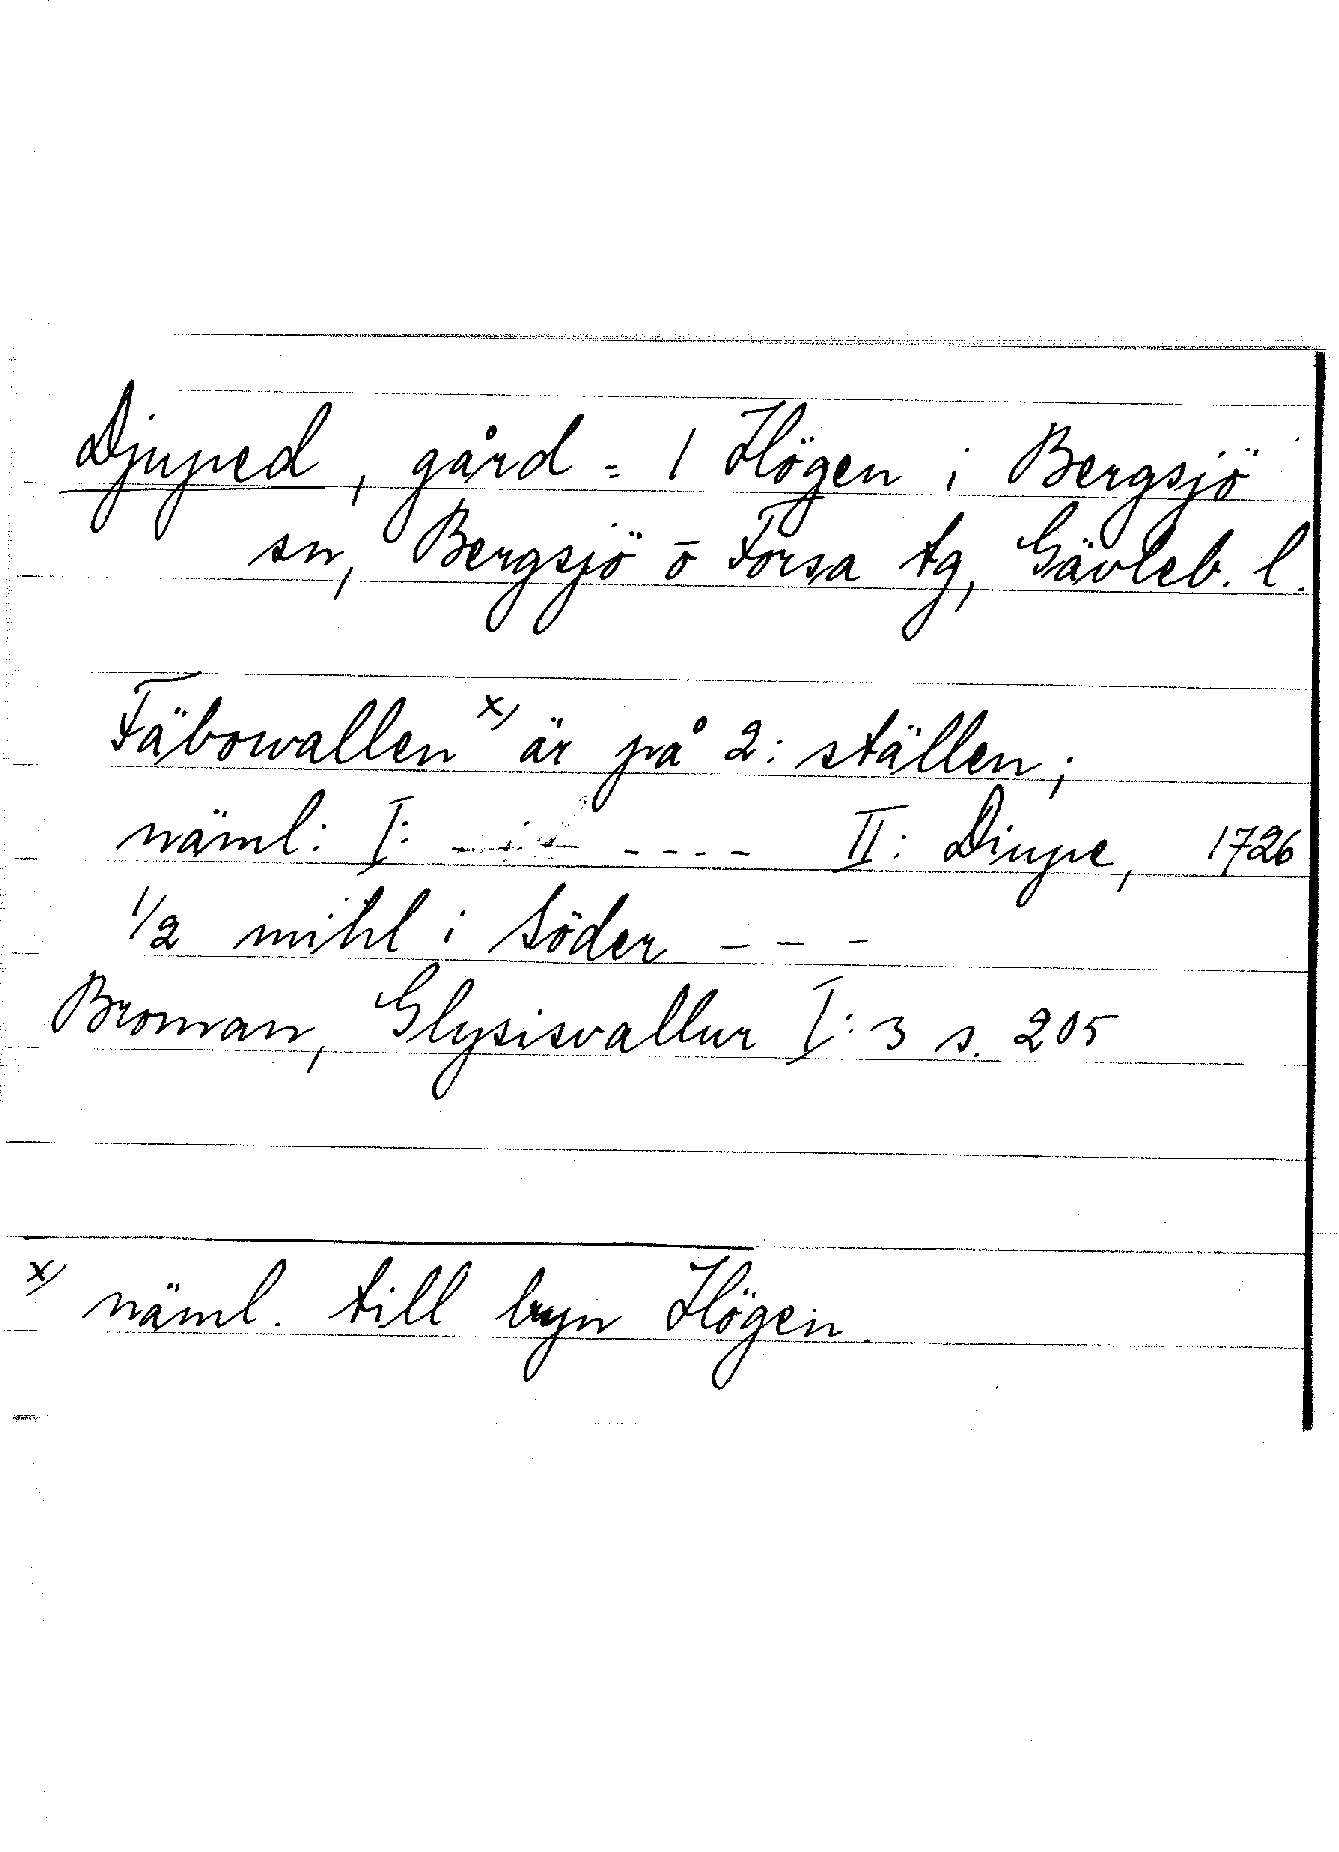 Djuped, gård = 1 Högen i Bergsjö
sn, Bergsjö o Forsa tg, Gävleb. l.
Fäbowallen x) är på 2: ställen;
näml: I: ---- ---- II: Diupe, 1726
1/2 mihl i Söder - - -
Broman, Glysisvallur I:3 s. 205
x) näml. till byn Högen.